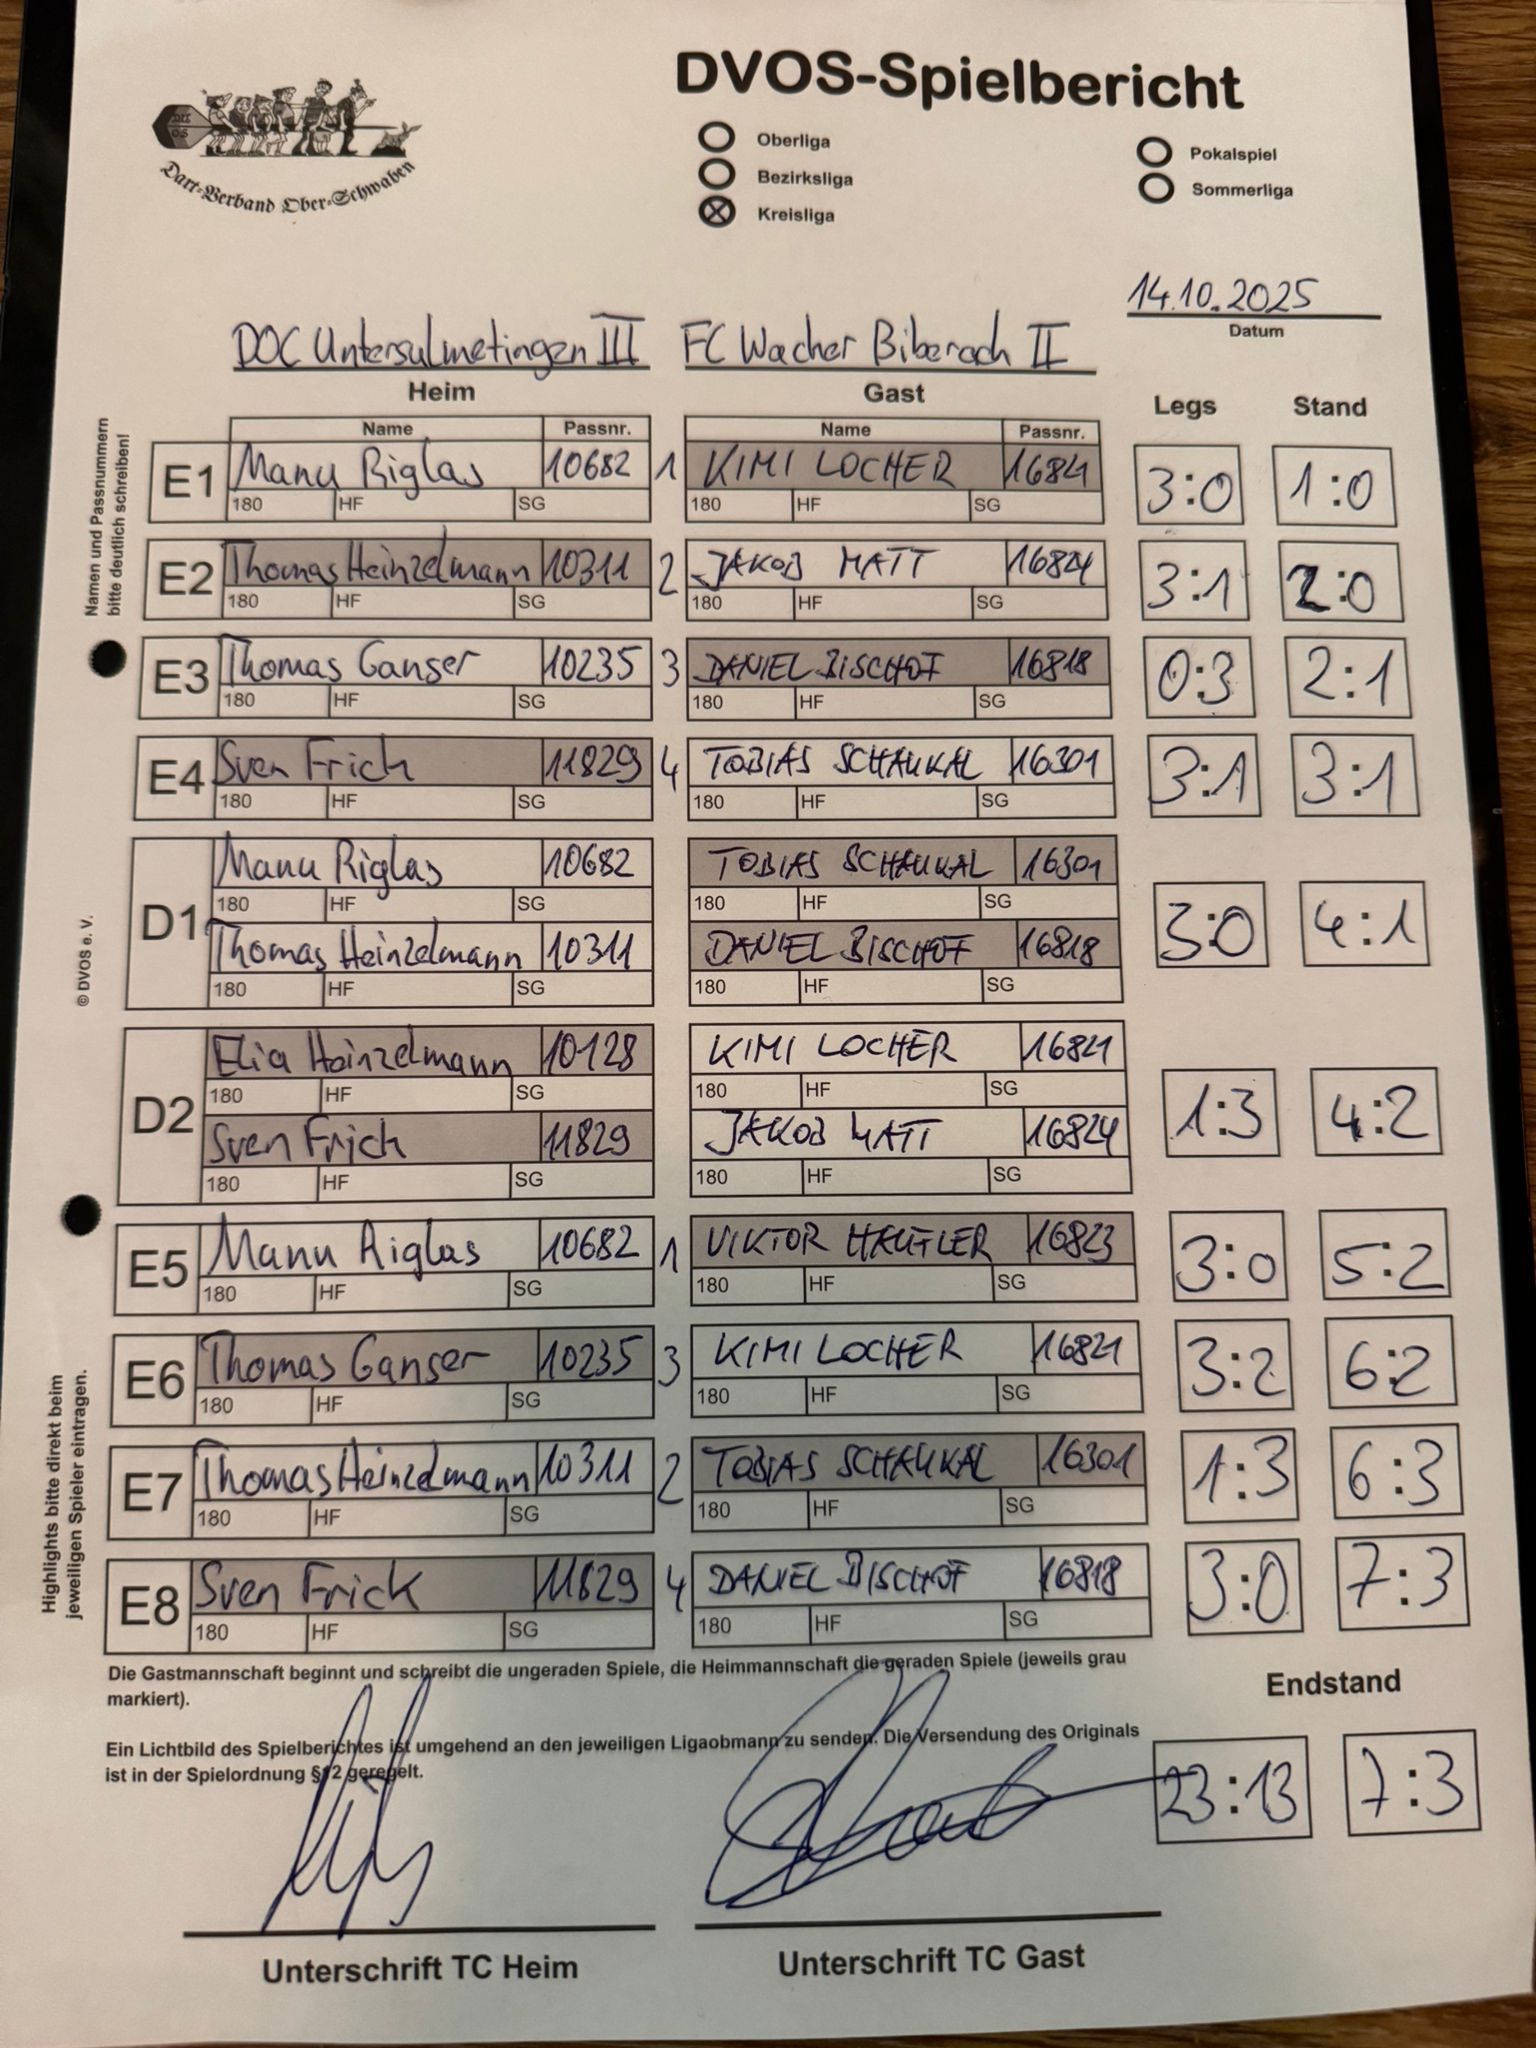 DVOS-Spielbericht
DVOS
Dart-Verband Ober-Schwaben
Oberliga
Bezirksliga
Kreisliga
Pokalspiel
Sommerliga
14.10.2025
Datum
DOC Untersulmetingen III FC Wacker Biberach II
Heim Gast Legs Stand
Namen und Passnummern
bitte deutlich schreiben!
Name Passnr. Name Passnr.
E1 Manu Riglas 10682 1 KIMI LOCHER 16821 3:0 1:0
180 HF SG 180 HF SG
E2 Thomas Heinzelmann 10311 2 JAKOB MATT 16824 3:1 2:0
180 HF SG 180 HF SG
E3 Thomas Ganser 10235 3 DANIEL BISCHOF 16818 0:3 2:1
180 HF SG 180 HF SG
E4 Sven Frick 11829 4 TOBIAS SCHAUKAL 16301 3:1 3:1
180 HF SG 180 HF SG
D1 Manu Riglas 10682 TOBIAS SCHAUKAL 16301 3:0 4:1
180 HF SG 180 HF SG
Thomas Heinzelmann 10311 DANIEL BISCHOF 16818
180 HF SG 180 HF SG
© DVOS e. V.
D2 Elia Heinzelmann 10128 KIMI LOCHER 16821 1:3 4:2
180 HF SG 180 HF SG
Sven Frick 11829 JAKOB MATT 16824
180 HF SG 180 HF SG
E5 Manu Riglas 10682 1 VIKTOR HAUFLER 16823 3:0 5:2
180 HF SG 180 HF SG
E6 Thomas Ganser 10235 3 KIMI LOCHER 16821 3:2 6:2
180 HF SG 180 HF SG
E7 Thomas Heinzelmann 10311 2 TOBIAS SCHAUKAL 16301 1:3 6:3
180 HF SG 180 HF SG
E8 Sven Frick 11829 4 DANIEL BISCHOF 16818 3:0 7:3
180 HF SG 180 HF SG
Highlights bitte direkt beim
jeweiligen Spieler eintragen.
Die Gastmannschaft beginnt und schreibt die ungeraden Spiele, die Heimmannschaft die geraden Spiele (jeweils grau
markiert).
Endstand
Ein Lichtbild des Spielberichtes ist umgehend an den jeweiligen Ligaobmann zu senden. Die Versendung des Originals
ist in der Spielordnung §12 geregelt.
23:13 7:3
Unterschrift TC Heim Unterschrift TC Gast